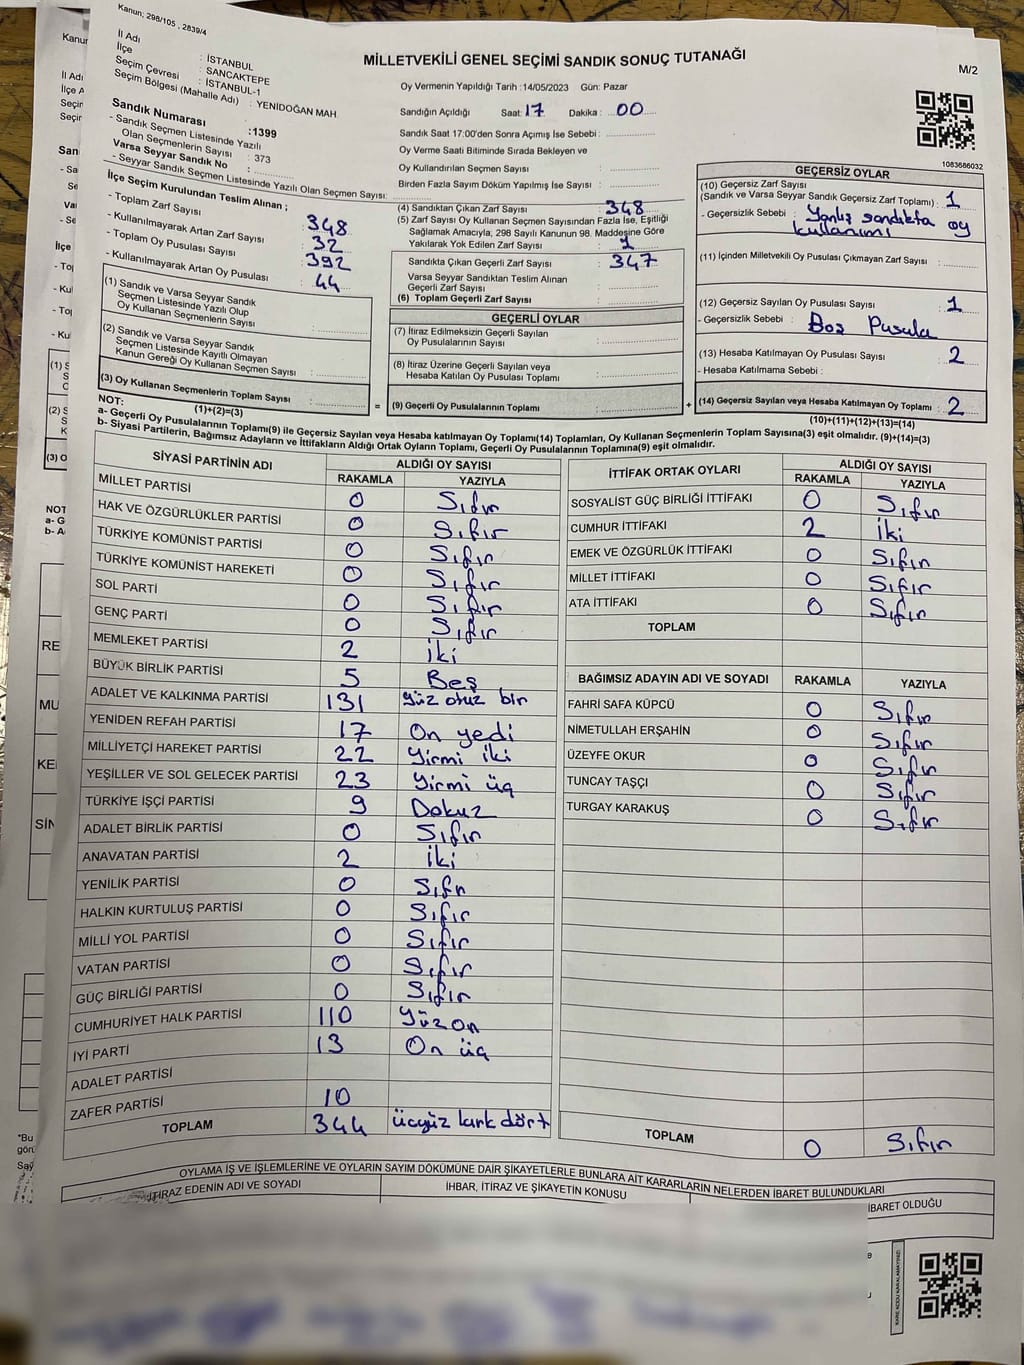 Kanun; 298/105 , 2839/4
MİLLETVEKİLİ GENEL SEÇİMİ SANDIK SONUÇ TUTANAĞI
M/2
İl Adı : İSTANBUL
İlçe : SANCAKTEPE
Seçim Çevresi : İSTANBUL-1
Seçim Bölgesi (Mahalle Adı) : YENİDOĞAN MAH
Sandık Numarası :1399
- Sandık Seçmen Listesinde Yazılı
Olan Seçmenlerin Sayısı : 373
Varsa Seyyar Sandık No :
- Seyyar Sandık Seçmen Listesinde Yazılı Olan Seçmen Sayısı:
İlçe Seçim Kurulundan Teslim Alınan ;
- Toplam Zarf Sayısı : 348
- Kullanılmayarak Artan Zarf Sayısı : 32
- Toplam Oy Pusulası Sayısı : 392
- Kullanılmayarak Artan Oy Pusulası : 44
(1) Sandık ve Varsa Seyyar Sandık
Seçmen Listesinde Yazılı Olup
Oy Kullanan Seçmenlerin Sayısı :
(2) Sandık ve Varsa Seyyar Sandık
Seçmen Listesinde Kayıtlı Olmayan
Kanun Gereği Oy Kullanan Seçmen Sayısı :
(3) Oy Kullanan Seçmenlerin Toplam Sayısı :
(1)+(2)=(3)
Oy Vermenin Yapıldığı Tarih :14/05/2023 Gün: Pazar
Sandığın Açıldığı Saat: 17 Dakika : 00
Sandık Saat 17:00'den Sonra Açımış İse Sebebi :
Oy Verme Saati Bitiminde Sırada Bekleyen ve
Oy Kullandırılan Seçmen Sayısı :
Birden Fazla Sayım Döküm Yapılmış İse Sayısı :
(4) Sandıktan Çıkan Zarf Sayısı : 348
(5) Zarf Sayısı Oy Kullanan Seçmen Sayısından Fazla İse, Eşitliği
Sağlamak Amacıyla, 298 Sayılı Kanunun 98. Maddesine Göre
Yakılarak Yok Edilen Zarf Sayısı : 1
Sandıkta Çıkan Geçerli Zarf Sayısı : 347
Varsa Seyyar Sandıktan Teslim Alınan
Geçerli Zarf Sayısı :
(6) Toplam Geçerli Zarf Sayısı :
GEÇERLİ OYLAR
(7) İtiraz Edilmeksizin Geçerli Sayılan
Oy Pusulalarının Sayısı :
(8) İtiraz Üzerine Geçerli Sayılan veya
Hesaba Katılan Oy Pusulası Toplamı :
= (9) Geçerli Oy Pusulalarının Toplamı : +
1083686032
GEÇERSİZ OYLAR
(10) Geçersiz Zarf Sayısı
(Sandık ve Varsa Seyyar Sandık Geçersiz Zarf Toplamı) : 1
- Geçersizlik Sebebi : Yanlış sandıkta oy
kullanımı
(11) İçinden Milletvekili Oy Pusulası Çıkmayan Zarf Sayısı :
(12) Geçersiz Sayılan Oy Pusulası Sayısı : 1
- Geçersizlik Sebebi : Boş Pusula
(13) Hesaba Katılmayan Oy Pusulası Sayısı : 2
- Hesaba Katılmama Sebebi :
(14) Geçersiz Sayılan veya Hesaba Katılmayan Oy Toplamı : 2
(10)+(11)+(12)+(13)=(14)
NOT:
a- Geçerli Oy Pusulalarının Toplamı(9) ile Geçersiz Sayılan veya Hesaba katılmayan Oy Toplamı(14) Toplamları, Oy Kullanan Seçmenlerin Toplam Sayısına(3) eşit olmalıdır. (9)+(14)=(3)
b- Siyasi Partilerin, Bağımsız Adayların ve İttifakların Aldığı Ortak Oyların Toplamı, Geçerli Oy Pusulalarının Toplamına(9) eşit olmalıdır.
SİYASİ PARTİNİN ADI ALDIĞI OY SAYISI
RAKAMLA YAZIYLA
MİLLET PARTİSİ 0 Sıfır
HAK VE ÖZGÜRLÜKLER PARTİSİ 0 Sıfır
TÜRKİYE KOMÜNİST PARTİSİ 0 Sıfır
TÜRKİYE KOMÜNİST HAREKETİ 0 Sıfır
SOL PARTİ 0 Sıfır
GENÇ PARTİ 0 Sıfır
MEMLEKET PARTİSİ 2 İki
BÜYÜK BİRLİK PARTİSİ 5 Beş
ADALET VE KALKINMA PARTİSİ 131 Yüz otuz bir
YENİDEN REFAH PARTİSİ 17 On yedi
MİLLİYETÇİ HAREKET PARTİSİ 22 Yirmi iki
YEŞİLLER VE SOL GELECEK PARTİSİ 23 Yirmi üç
TÜRKİYE İŞÇİ PARTİSİ 9 Dokuz
ADALET BİRLİK PARTİSİ 0 Sıfır
ANAVATAN PARTİSİ 2 İki
YENİLİK PARTİSİ 0 Sıfır
HALKIN KURTULUŞ PARTİSİ 0 Sıfır
MİLLİ YOL PARTİSİ 0 Sıfır
VATAN PARTİSİ 0 Sıfır
GÜÇ BİRLİĞİ PARTİSİ 0 Sıfır
CUMHURİYET HALK PARTİSİ 110 Yüz on
İYİ PARTİ 13 On üç
ADALET PARTİSİ
ZAFER PARTİSİ 10
TOPLAM 344 üçyüz kırk dört
İTTİFAK ORTAK OYLARI ALDIĞI OY SAYISI
RAKAMLA YAZIYLA
SOSYALİST GÜÇ BİRLİĞİ İTTİFAKI 0 Sıfır
CUMHUR İTTİFAKI 2 İki
EMEK VE ÖZGÜRLÜK İTTİFAKI 0 Sıfır
MİLLET İTTİFAKI 0 Sıfır
ATA İTTİFAKI 0 Sıfır
TOPLAM
BAĞIMSIZ ADAYIN ADI VE SOYADI RAKAMLA YAZIYLA
FAHRİ SAFA KÜPCÜ 0 Sıfır
NİMETULLAH ERŞAHİN 0 Sıfır
ÜZEYFE OKUR 0 Sıfır
TUNCAY TAŞÇI 0 Sıfır
TURGAY KARAKUŞ 0 Sıfır
TOPLAM 0 Sıfır
OYLAMA İŞ VE İŞLEMLERİNE VE OYLARIN SAYIM DÖKÜMÜNE DAİR ŞİKAYETLERLE BUNLARA AİT KARARLARIN NELERDEN İBARET BULUNDUKLARI
İTİRAZ EDENİN ADI VE SOYADI İHBAR, İTİRAZ VE ŞİKAYETİN KONUSU İBARET OLDUĞU